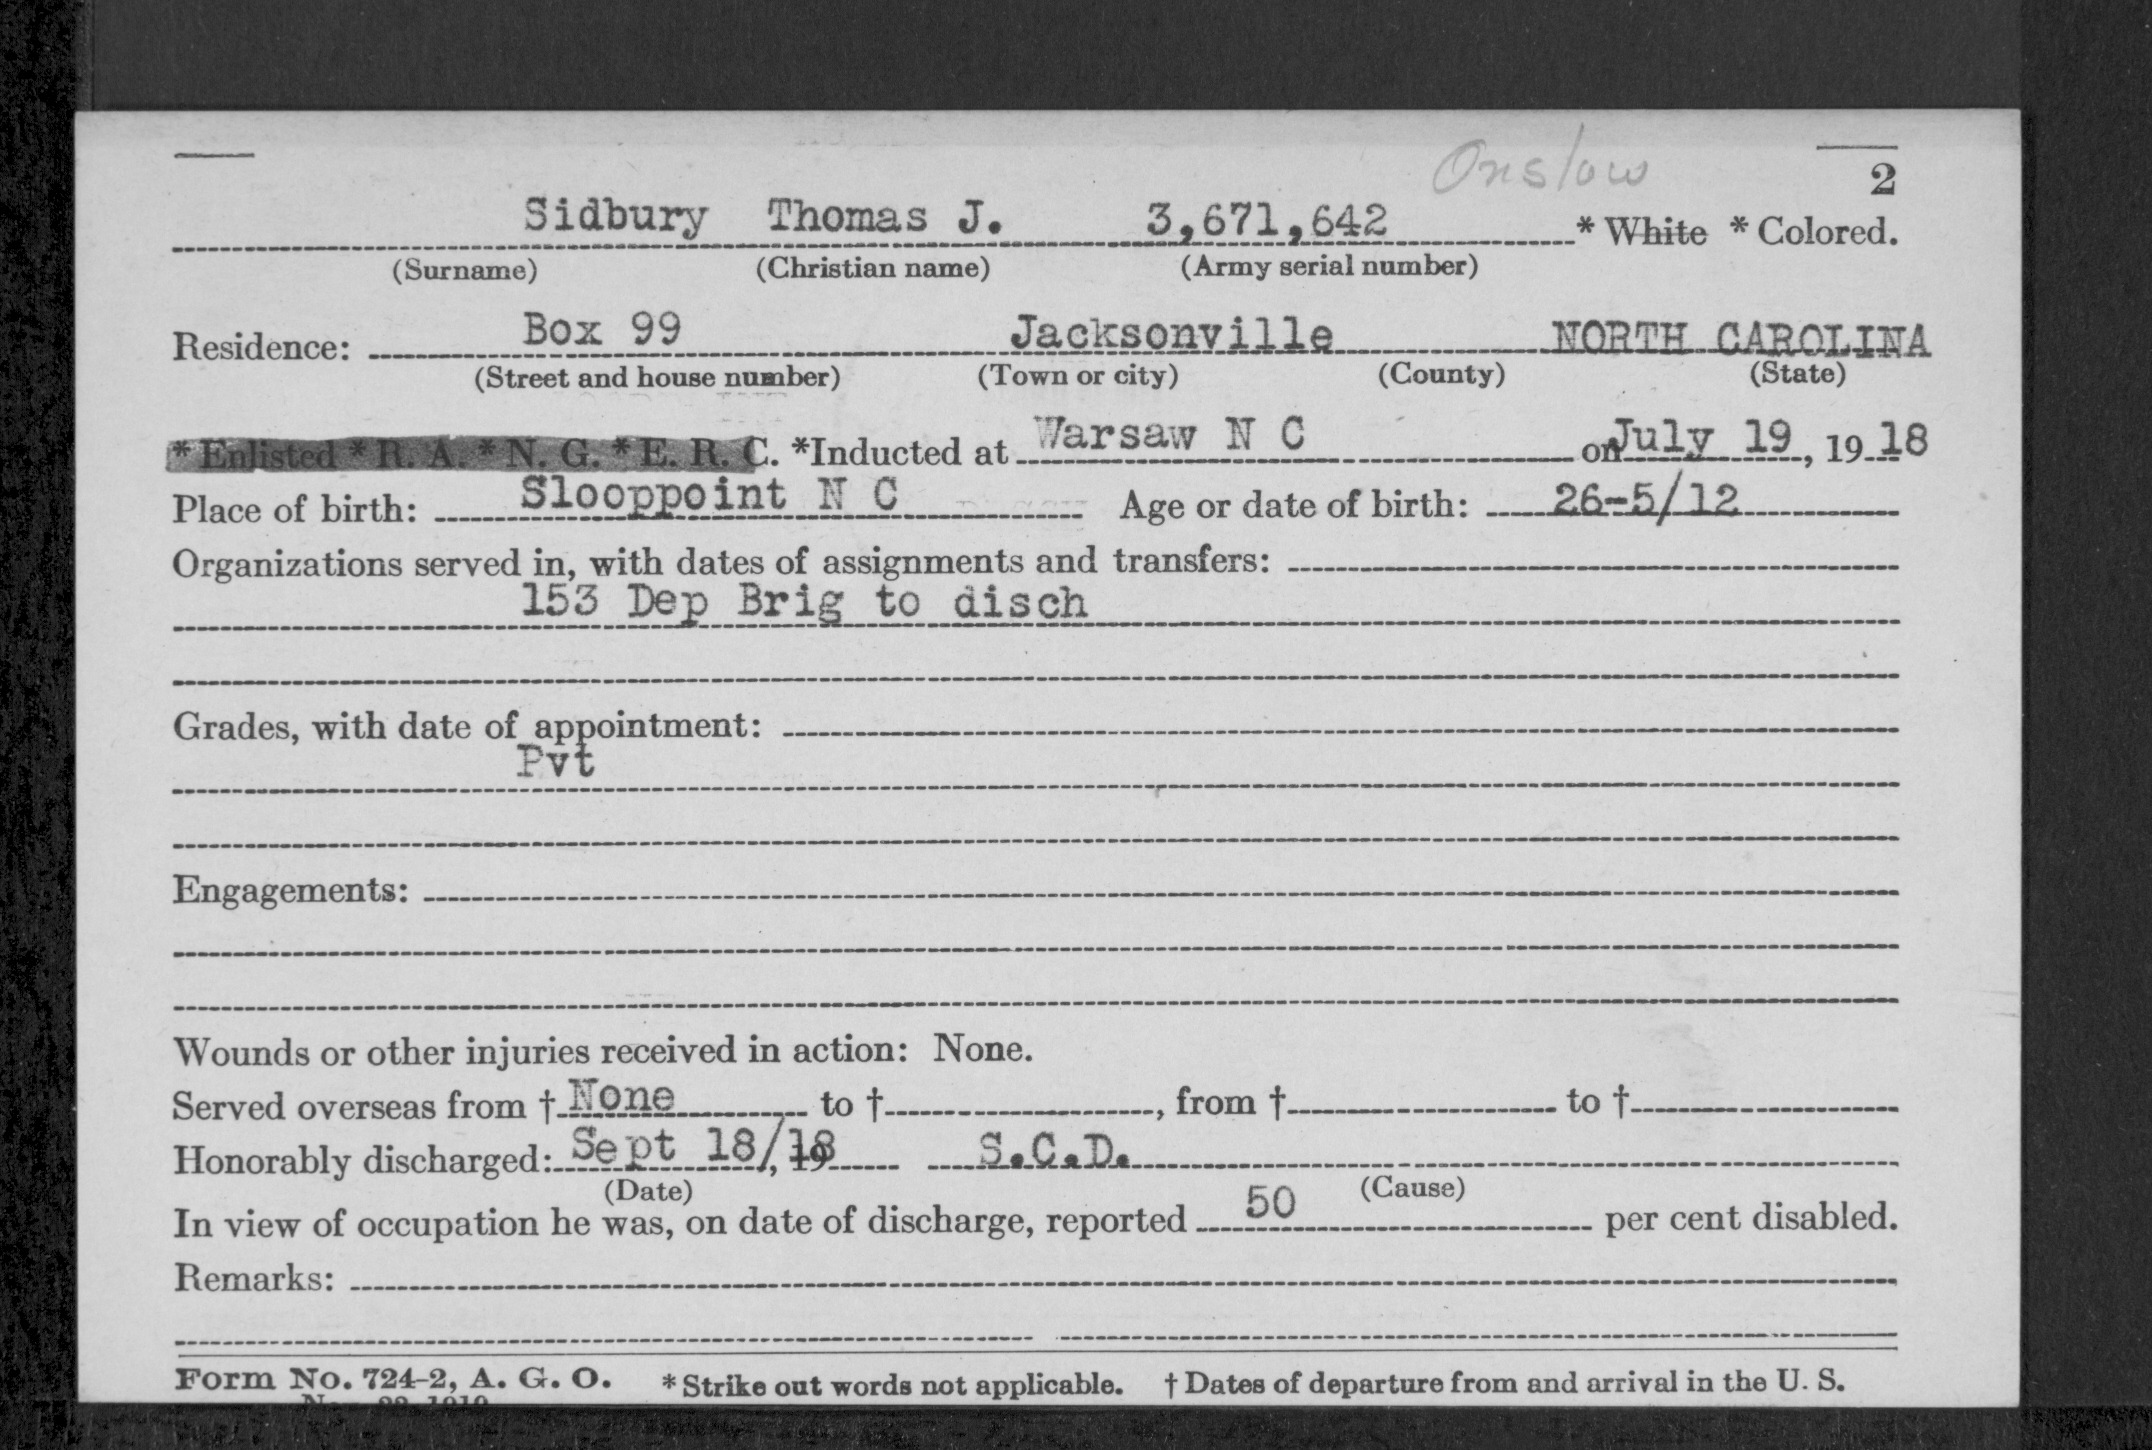 Onslow
2
Sidbury Thomas J. 3,671,642 * White * Colored.
(Surname) (Christian name) (Army serial number)
Residence: Box 99 Jacksonville NORTH CAROLINA
(Street and house number) (Town or city) (County) (State)
* Enlisted * R. A. * N. G. * E. R. C. *Inducted at Warsaw N C on July 19, 19 18
Place of birth: Slooppoint N C Age or date of birth: 26-5/12
Organizations served in, with dates of assignments and transfers:
153 Dep Brig to disch
Grades, with date of appointment:
Pvt
Engagements:
Wounds or other injuries received in action: None.
Served overseas from † None to † , from † to †
Honorably discharged: Sept 18/18, 19 S.C.D.
(Date) (Cause)
In view of occupation he was, on date of discharge, reported 50 per cent disabled.
Remarks:
Form No. 724-2, A. G. O. * Strike out words not applicable. † Dates of departure from and arrival in the U. S.